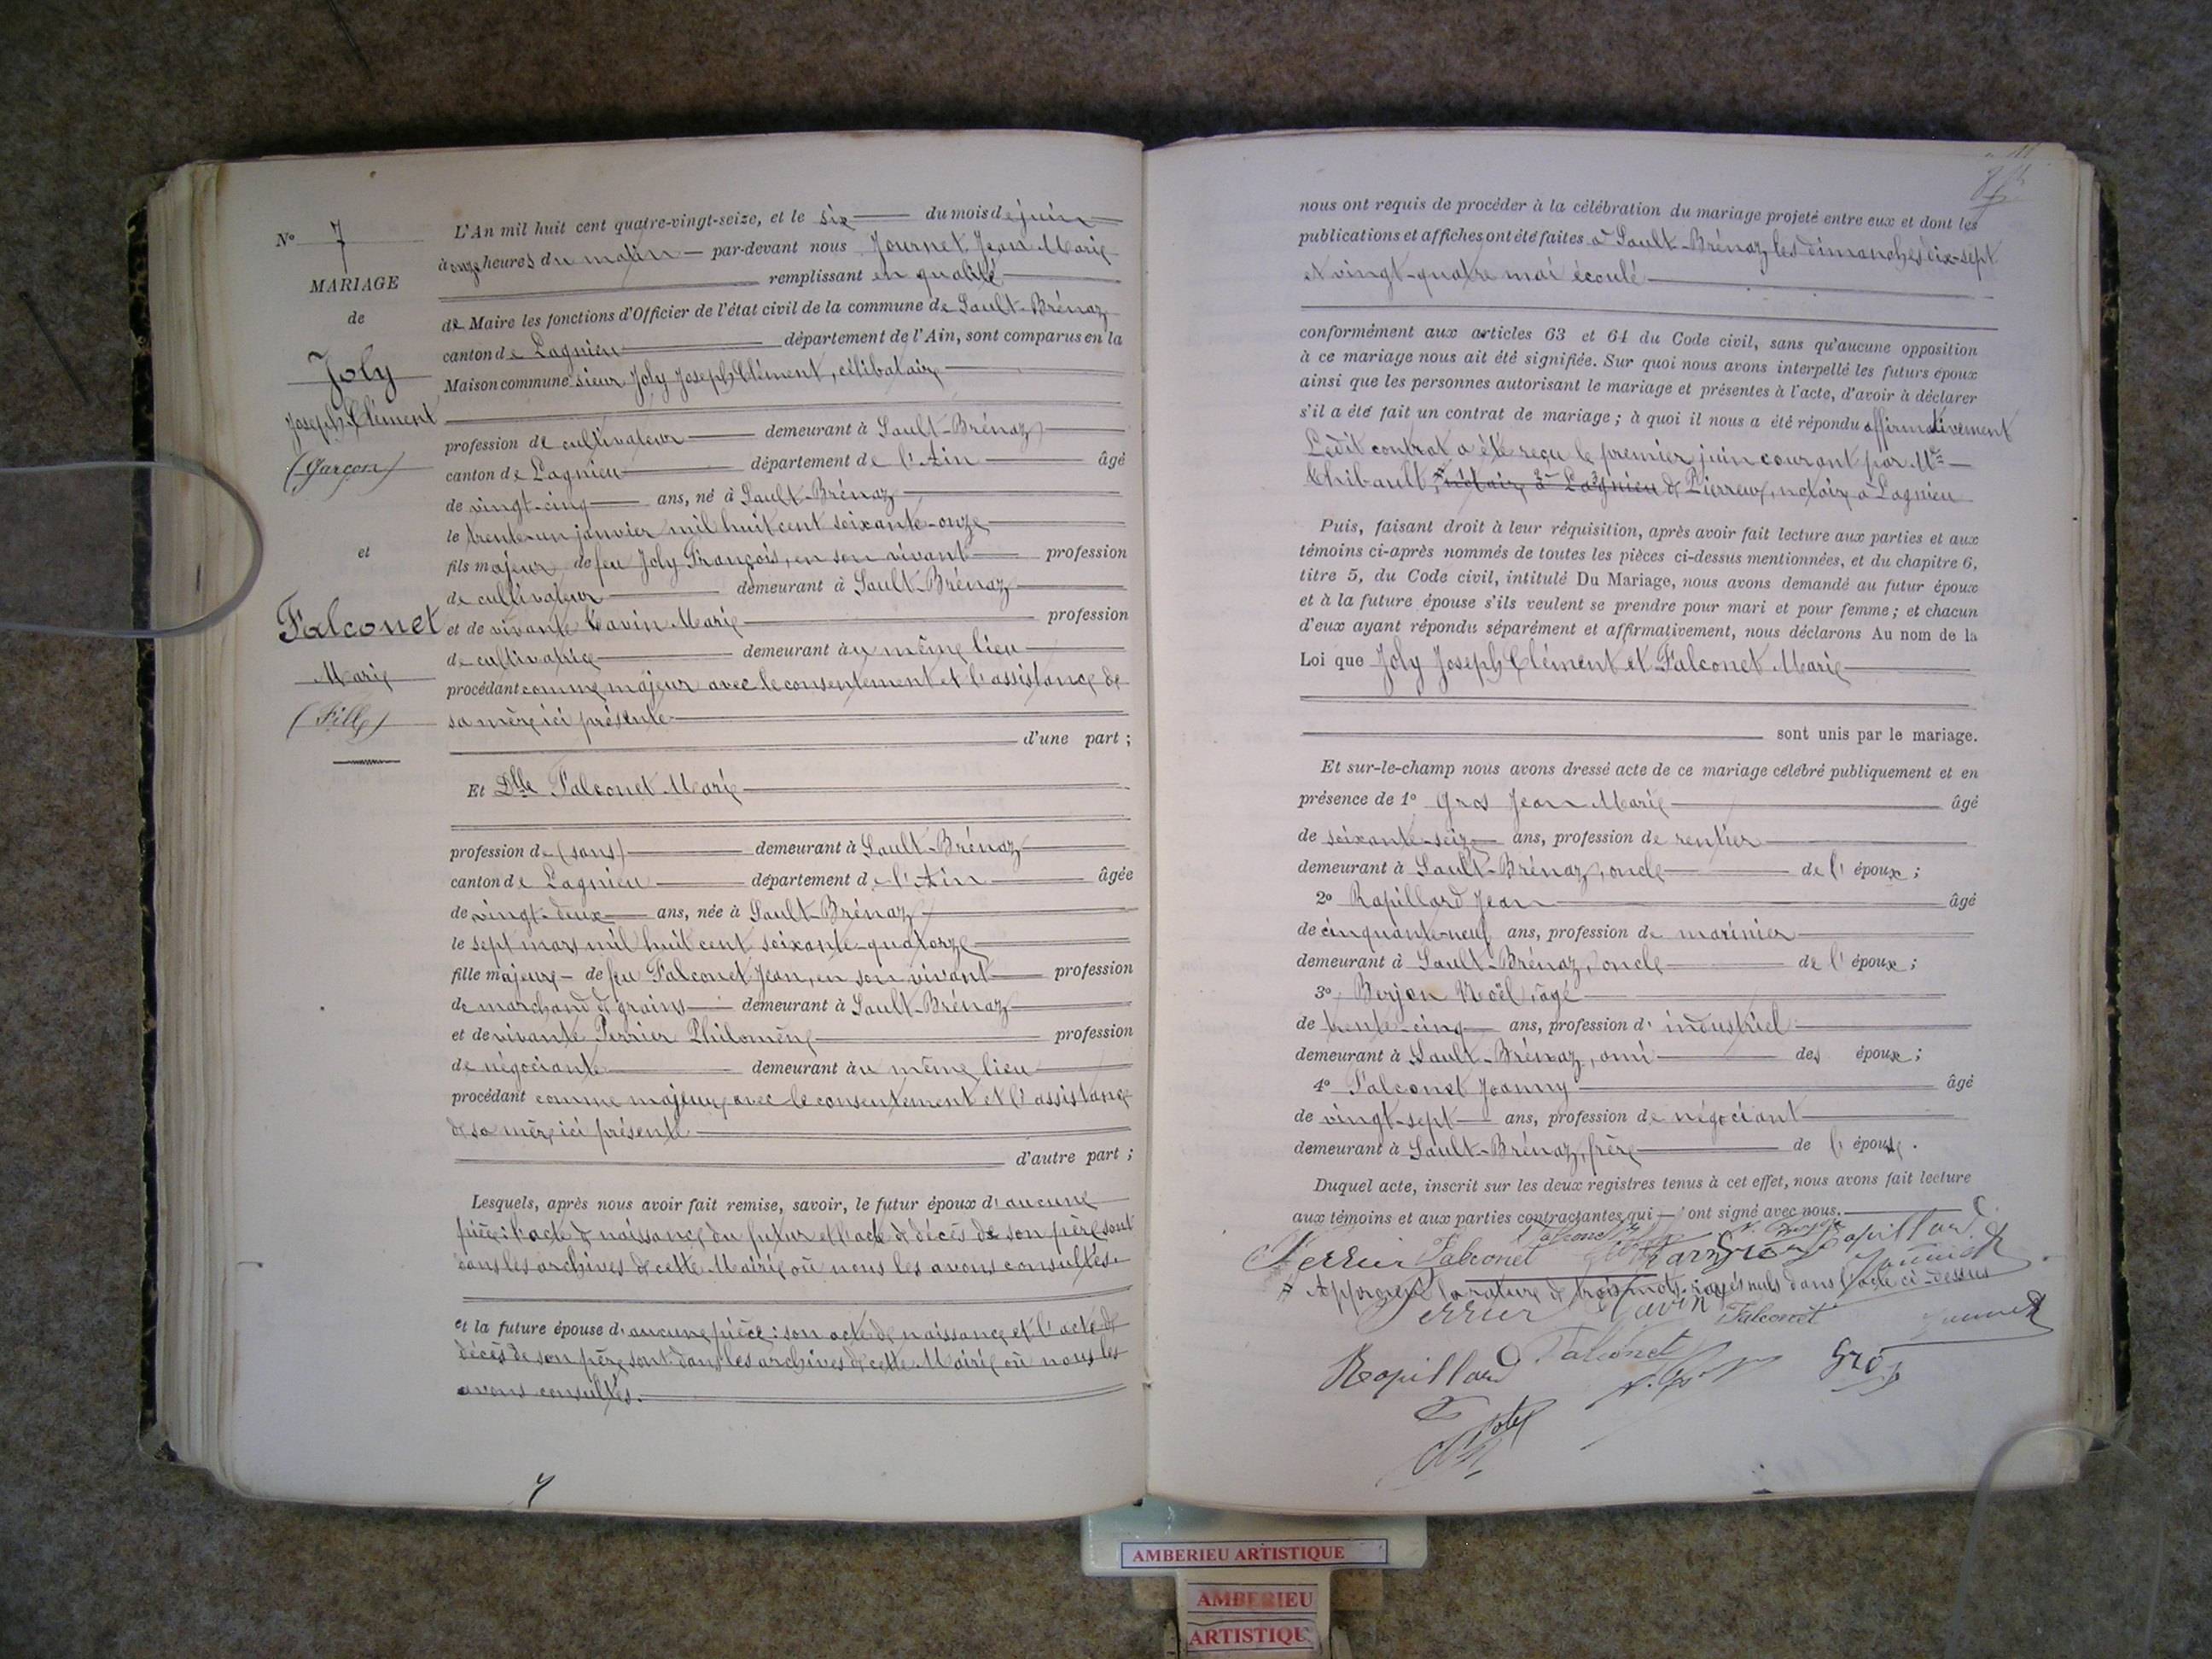 N° 7
MARIAGE
de
Joly
Joseph Clément
(Garçon)
et
Falconet
Marie
(Fille)
L'An mil huit cent quatre-vingt-seize, et le six du mois de juin
à onze heures du matin par-devant nous Journet Jean Marie
remplissant en qualité
de Maire les fonctions d'Officier de l'état civil de la commune de Sault-Brénaz
canton de Lagnieu département de l'Ain, sont comparus en la
Maison commune sieur Joly Joseph Clément, célibataire
profession de cultivateur demeurant à Sault-Brénaz
canton de Lagnieu département de l'Ain âgé
de vingt-cinq ans, né à Sault-Brénaz
le trente-un janvier mil huit cent soixante-onze
fils majeur de feu Joly François, en son vivant profession
de cultivateur demeurant à Sault-Brénaz
et de vivante Cavin Marie profession
de cultivatrice demeurant au même lieu
procédant comme majeur avec le consentement et l'assistance de
sa mère ici présente
d'une part ;
Et Dlle Falconet Marie
profession de (sans) demeurant à Sault-Brénaz
canton de Lagnieu département de l'Ain âgée
de vingt-deux ans, née à Sault-Brénaz
le sept mars mil huit cent soixante-quatorze
fille majeure de feu Falconet Jean, en son vivant profession
de marchand de grains demeurant à Sault-Brénaz
et de vivante Perrier Philomène profession
de négociante demeurant au même lieu
procédant comme majeure avec le consentement et l'assistance
de sa mère ici présente
d'autre part ;
Lesquels, après nous avoir fait remise, savoir, le futur époux d'aucune
pièce : l'acte de naissance du futur et l'acte de décès de son père sont
dans les archives de cette Mairie où nous les avons consultés.
et la future épouse d'aucune pièce : son acte de naissance et l'acte de
décès de son père sont dans les archives de cette Mairie où nous les
avons consultés.
nous ont requis de procéder à la célébration du mariage projeté entre eux et dont les
publications et affiches ont été faites à Sault-Brénaz les dimanches dix-sept
et vingt-quatre mai écoulé
conformément aux articles 63 et 64 du Code civil, sans qu'aucune opposition
à ce mariage nous ait été signifiée. Sur quoi nous avons interpellé les futurs époux
ainsi que les personnes autorisant le mariage et présentes à l'acte, d'avoir à déclarer
s'il a été fait un contrat de mariage ; à quoi il nous a été répondu affirmativement
Ledit contrat a été reçu le premier juin courant par Me
Thibault, notaire à Lagnieu de Pierreux, notaire à Lagnieu
Puis, faisant droit à leur réquisition, après avoir fait lecture aux parties et aux
témoins ci-après nommés de toutes les pièces ci-dessus mentionnées, et du chapitre 6,
titre 5, du Code civil, intitulé Du Mariage, nous avons demandé au futur époux
et à la future épouse s'ils veulent se prendre pour mari et pour femme ; et chacun
d'eux ayant répondu séparément et affirmativement, nous déclarons Au nom de la
Loi que Joly Joseph Clément et Falconet Marie
sont unis par le mariage.
Et sur-le-champ nous avons dressé acte de ce mariage célébré publiquement et en
présence de 1° Gros Jean Marie âgé
de soixante-seize ans, profession de rentier
demeurant à Sault-Brénaz, oncle de l'époux ;
2° Rapillard Jean âgé
de cinquante-neuf ans, profession de marinier
demeurant à Sault-Brénaz, oncle de l'époux ;
3° Berjon Noël, âgé
de trente-cinq ans, profession d'industriel
demeurant à Sault-Brénaz, ami des époux ;
4° Falconet Joanny âgé
de vingt-sept ans, profession de négociant
demeurant à Sault-Brénaz, frère de l'épouse.
Duquel acte, inscrit sur les deux registres tenus à cet effet, nous avons fait lecture
aux témoins et aux parties contractantes qui ont signé avec nous.
Falconet
Perrier Falconet Gros Rapillard
Journet
Approuvé la rature de trois mots rayés nuls dans l'acte ci-dessus
Perrier Cavin Falconet Journet
Rapillard Falconet Gros
Joly
7
AMBERIEU ARTISTIQUE
AMBERIEU
ARTISTIQU